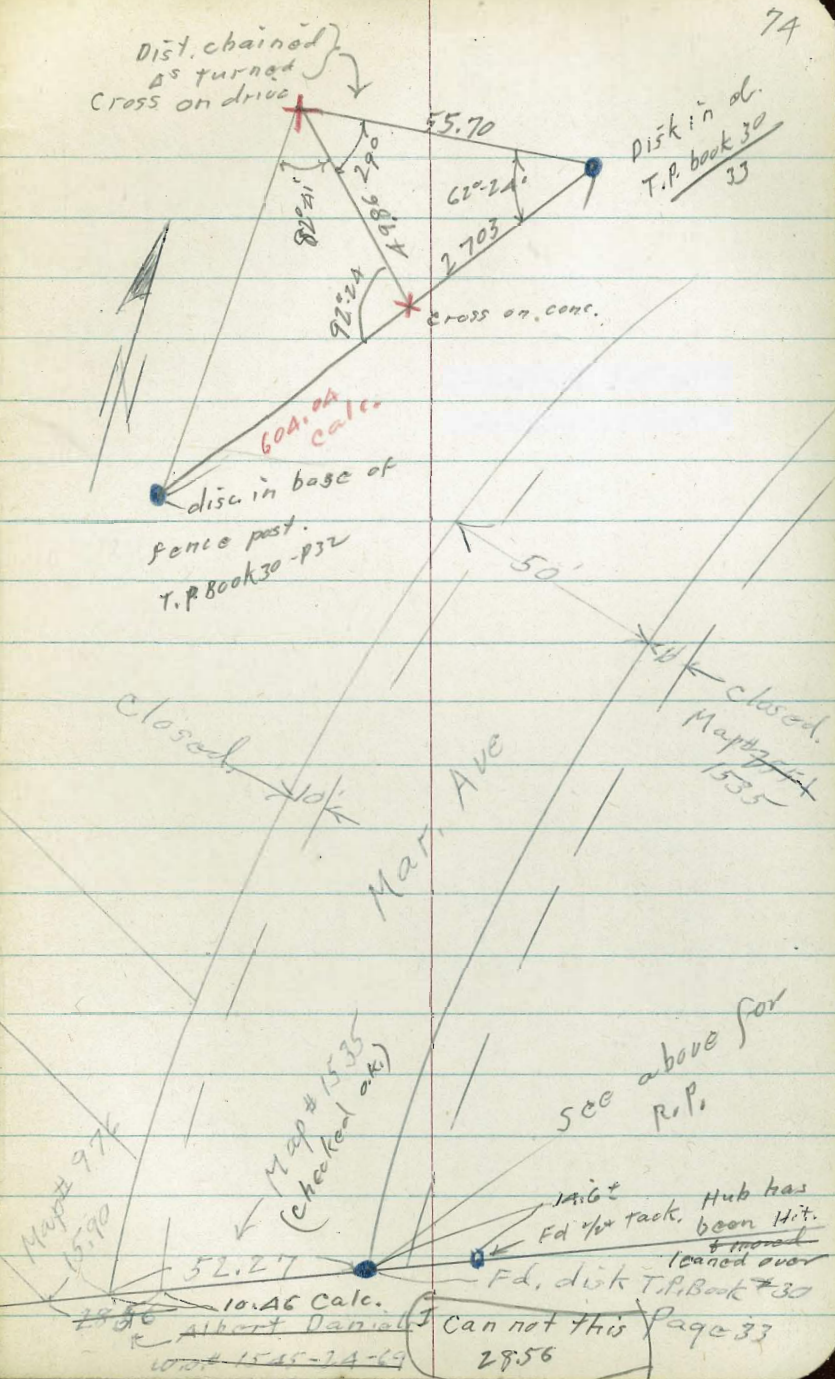 74
Dist. chained
∆s turned
Cross on drive
55.70
Disk in d.
T.P. book 30
33
290
49.86
82°-41'
62°-24'
2703
92°-24
Cross on. conc.
604.04
calc.
disc in base of
fence post.
T.P. Book 30 - P32
50'
10'
Closed.
10'
closed.
Map#
1535
Mar. Ave
See above for
R.P.
Map # 1535
(checked o.k.)
Map# 976
15.90
14.6±
Fd tack.
Hub has
been Hit.
& moved
leaned over
52.27
Fd. disk T.P. Book #30
Page 33
28.56
10.46 Calc.
Albert Daniel
W.O.# 1545-24-69
I Can not this
28.56